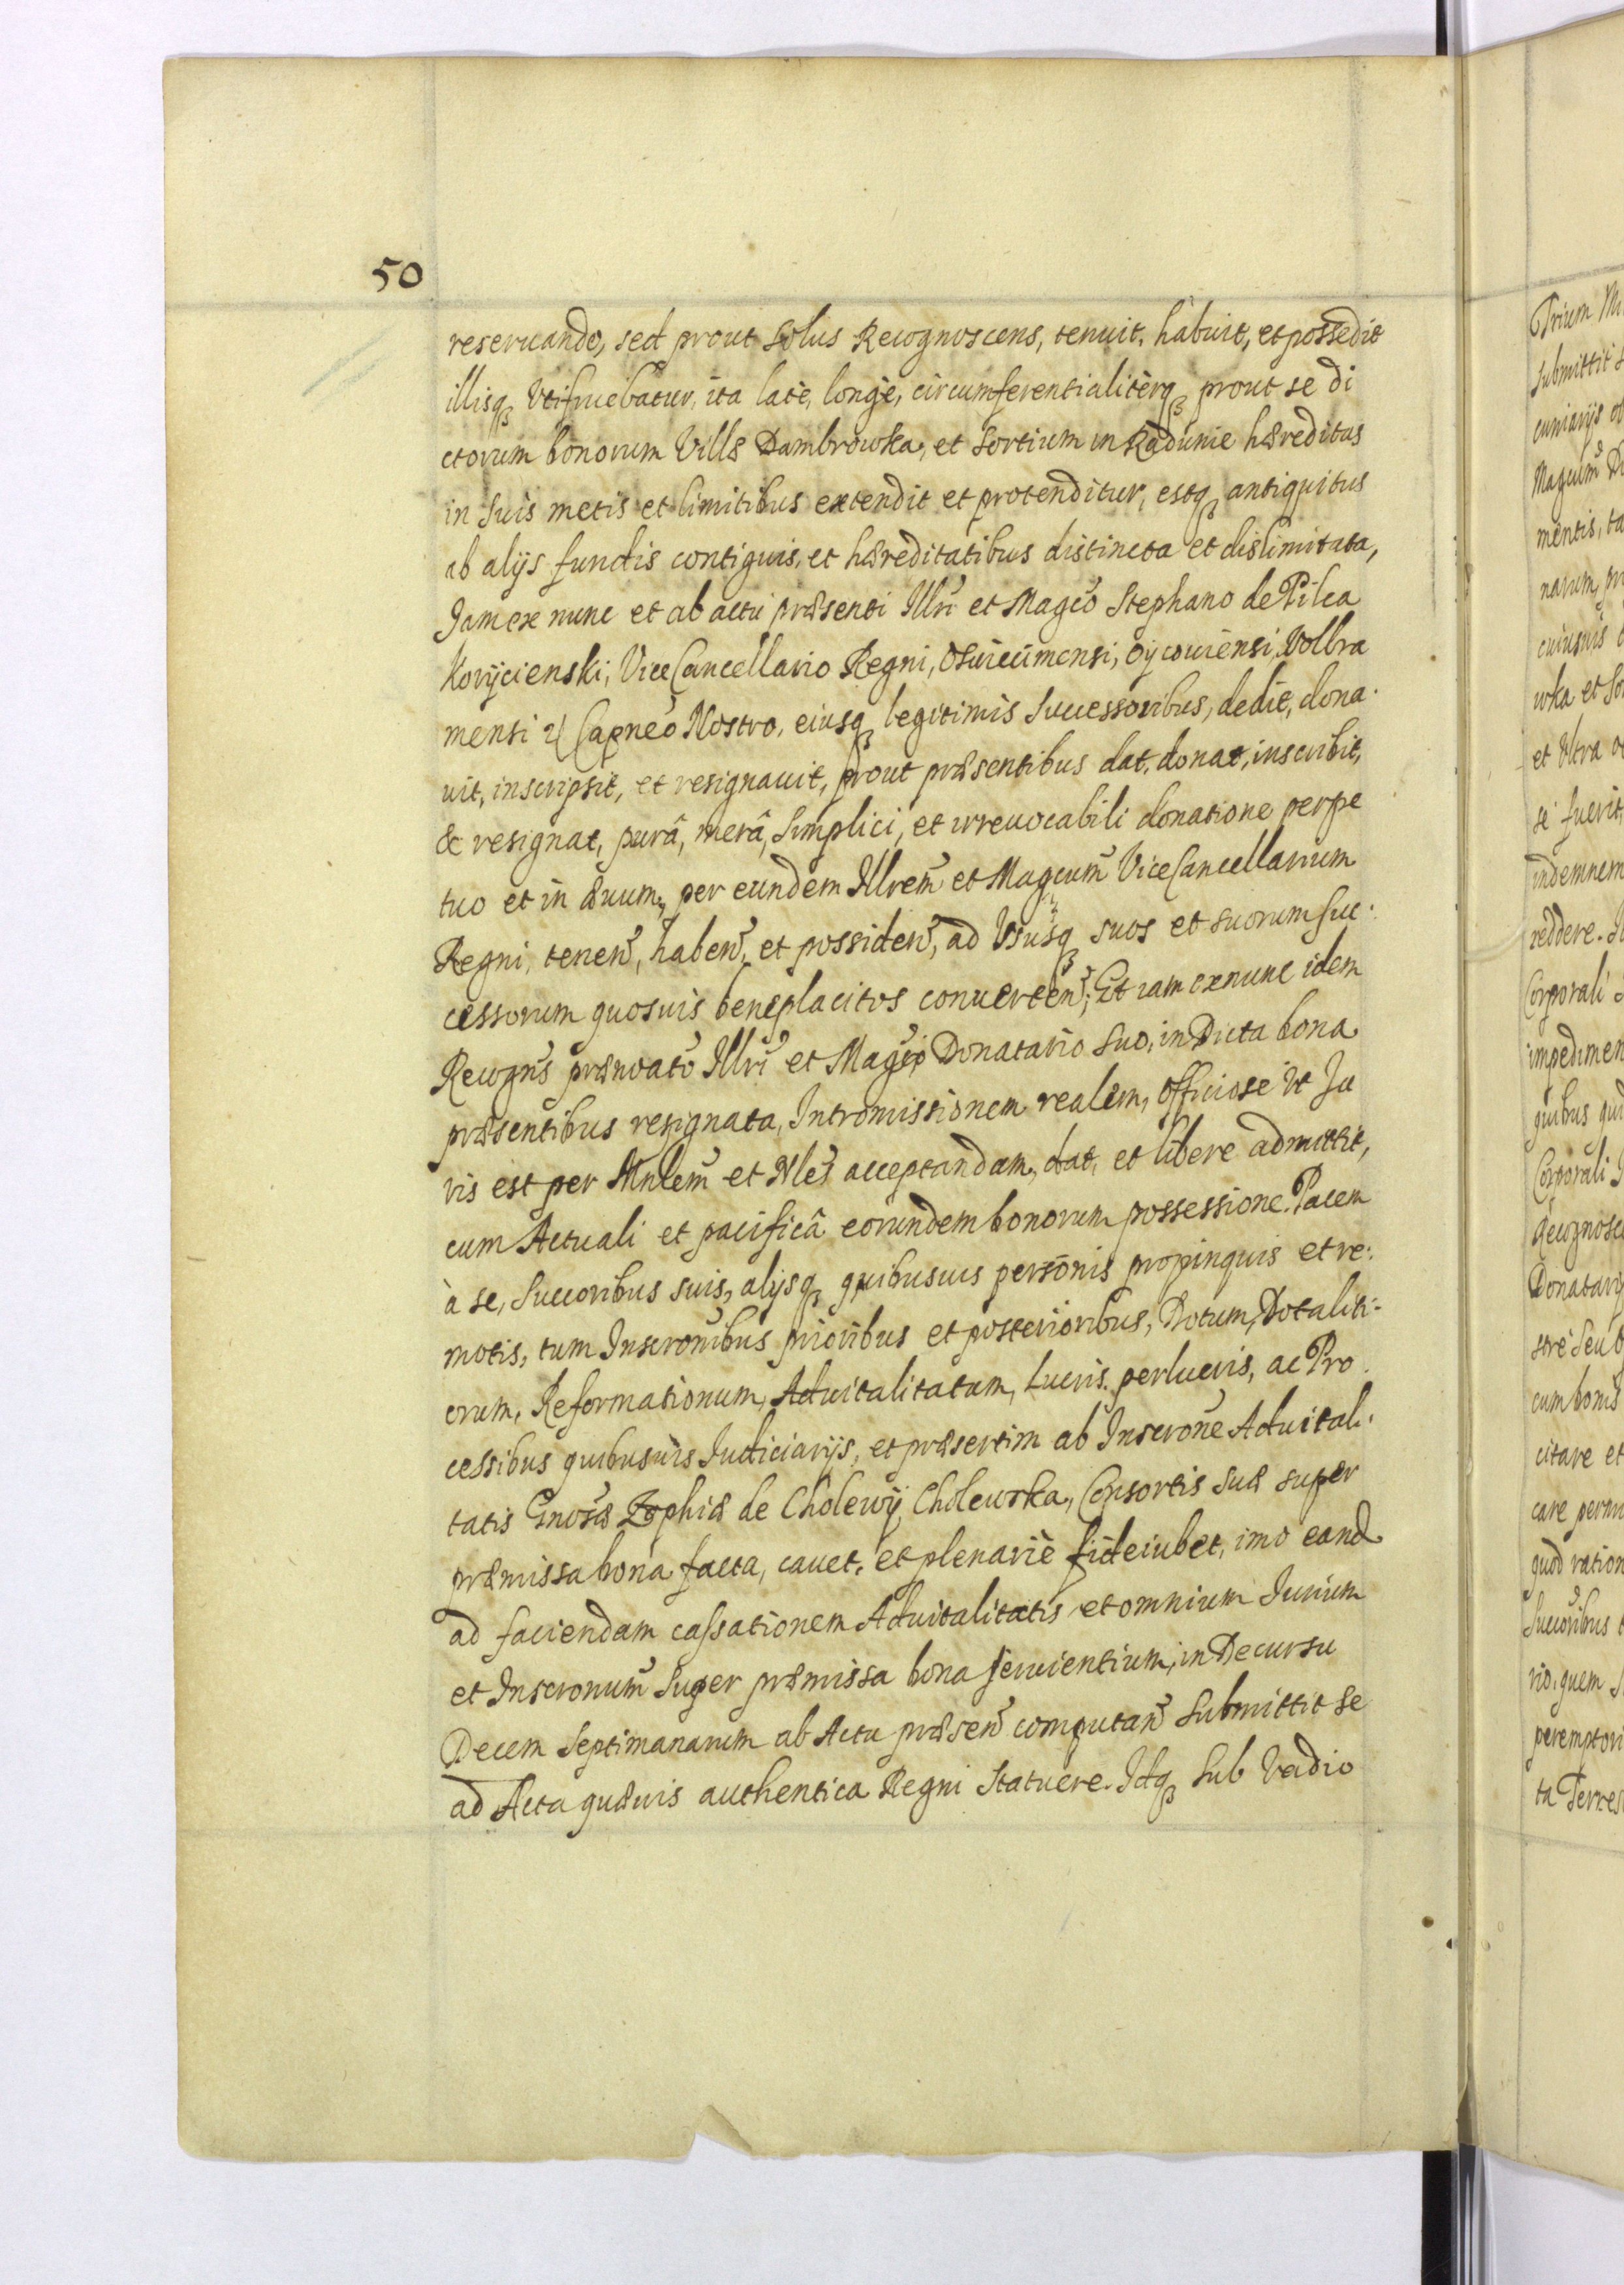 50
reseruando, sed prout solus Recognoscens, tenuit, habuit, et possedit
illisq3 Vtifruebatur, ita latè, longè, circumferentialitèrq3 prout se di
ctorum bonorum Villæ Dambrowka, et sortium in Radunie hæreditas
in suis metis et limitibus extendit et protenditur, estq3 antiquitus
ab alijs fundis contiguis, et hæreditatibus distincta et dislimitata,
Jam ex nunc et ab actu præsenti Illri et Magco Stephano de Pilca
Korycienski, ViceCancellario Regni, Oswiecimensi, Oycouiensi, Wolbra
mensi & Capneo Nostro, eiusq3 legitimis Successoribus, dedit, dona
uit, inscripsit, et resignauit, prout præsentibus dat, donat, inscribit,
& resignat, purâ, merâ, simplici, et irreuocabili donatione perpe
tuo et in æuum, per eundem Illrem et Magcum ViceCancellarium
Regni, tenen, haben, et possiden, ad Vsusq3 suos et suorum suc:
cessorum quosuis beneplacitos conuerten; Et iam ex nunc idem
Recogns prænoato Illri et Magco Donatario suo, in Dicta bona
præsentibus resignata, Intromissionem realem, officiose Vt Ju
ris est per Mnlem et Nles acceptandam, dat, et libere admittit,
cum Actuali et pacificâ eorundem bonorum possessione. Pacem
à se, Succoribus suis, alijsq3 quibusuis personis propinquis et re:
motis, tum Inscronibus prioribus et posterioribus, Dotum, Dotaliti:
orum, Reformationum, Aduitalitatum, Lucris. perlucris, ac Pro
cessibus quibusuis Judiciarijs, et præsertim ab Inscrone Aduitali
tatis Gnosæ Zophiæ de Cholewy Cholewska, Consortis suæ super
præmissa bona facta, cauet, et plenariè fideiubet, imo eand
ad faciendam cassationem Aduitalitatis et omnium Jurium
et Inscronum super præmissa bona seruientium, in Decursu
Decem Septimanarum ab Actu præsen computan submittit se
ad Acta quæuis authentica Regni statuere. Idq3 sub Vadio